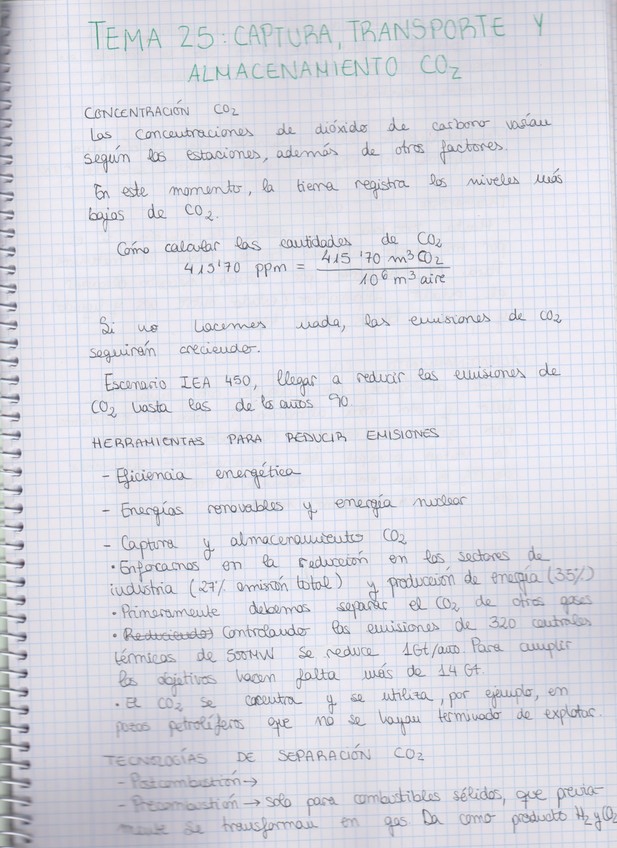 TEMA 25: CAPTURA, TRANSPORTE Y
ALMACENAMIENTO CO2
CONCENTRACIÓN CO2
Las concentraciones de dióxido de carbono varían
según las estaciones, además de otros factores.
En este momento, la tierra registra los niveles más
bajos de CO2.
Cómo calcular las cantidades de CO2
415'70 ppm = 415'70 m³ CO2 / 10⁶ m³ aire
Si no hacemos nada, las emisiones de CO2
seguirán creciendo.
Escenario IEA 450, llegar a reducir las emisiones de
CO2 hasta las de los años 90.
HERRAMIENTAS PARA REDUCIR EMISIONES
- Eficiencia energética
- Energías renovables y energía nuclear
- Captura y almacenamiento CO2
• Enfocarnos en la reducción en los sectores de
industria (27% emisión total) y producción de energía (35%)
• Primeramente debemos separar el CO2 de otros gases
• Reduciendo Controlando las emisiones de 320 centrales
térmicas de 500MW se reduce 1Gt/año. Para cumplir
los objetivos hacen falta más de 14 Gt.
• El CO2 se y se utiliza, por ejemplo, en
pozos petrolíferos que no se hayan terminado de explotar.
TECNOLOGÍAS DE SEPARACIÓN CO2
- Postcombustión →
- Precombustión → solo para combustibles sólidos, que previa-
mente se transforman en gas Da como producto H2 y CO2